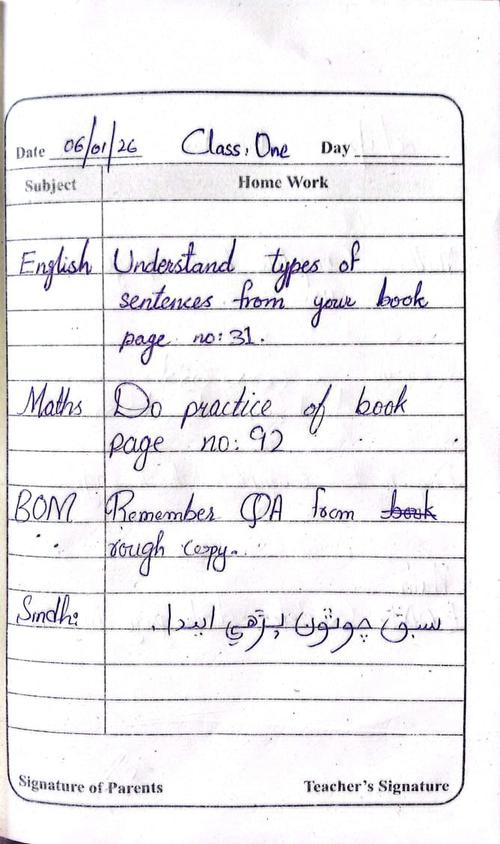 Date 06/01/26 Class, One Day
Subject Home Work
English Understand types of
sentences from your book
page no: 31.
Maths Do practice of book
page no: 92
BOM Remember QA from book
rough copy.
Sindhi سبق چوٿون پڙهي ايندا.
Signature of Parents Teacher's Signature